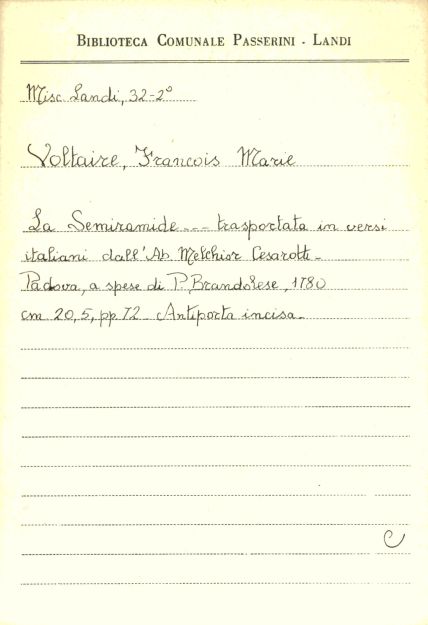 BIBLIOTECA COMUNALE PASSERINI - LANDI
Misc. Landi, 32-2°
Voltaire, Francois Marie
La Semiramide --- trasportata in versi
italiani dall'Ab. Melchior Cesarotti -
Padova, a spese di P. Brandolese, 1780
cm 20,5, pp 72 - Antiporta incisa -
C